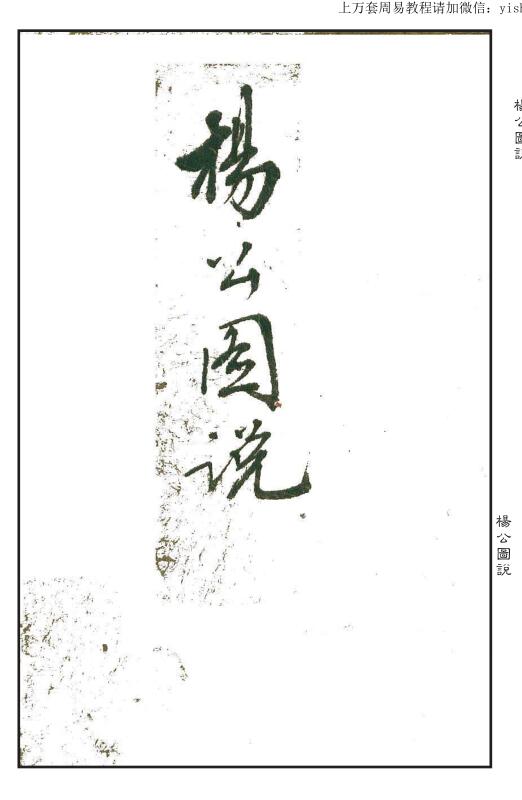 上万套周易教程请加微信：yish
楊公圖説
楊公图说
楊公圖説